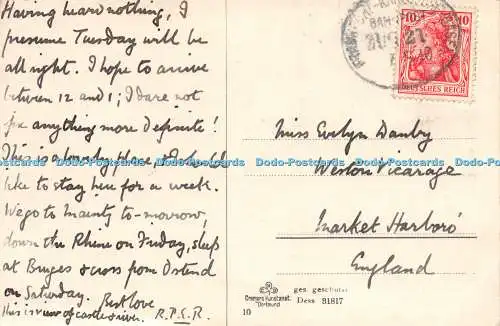 Having heard nothing, I
presume Tuesday will be
all right. I hope to arrive
between 12 and 1; I dare not
fix anything more definite!
This is a lovely place & I should
like to stay here for a week.
We go to Mainty to-morrow,
down the Rhine on Friday, sleep
at Bruges & cross from Ostend
on Saturday. Best love
This is view of castle & river. R.P.S.R.
10 10
DEUTSCHES REICH
BAHNPOST
ZUG 21
Miss Evelyn Danby
Weston Vicarage
Market Harboro'
England
Dodo-Postcards Dodo-Postcards Dodo-Postcards Dodo-Postcards Dodo-Postcards Dodo-Postcards
Cramers Kunstanst.
Dortmund
ges. geschützt
Dess 31817
10